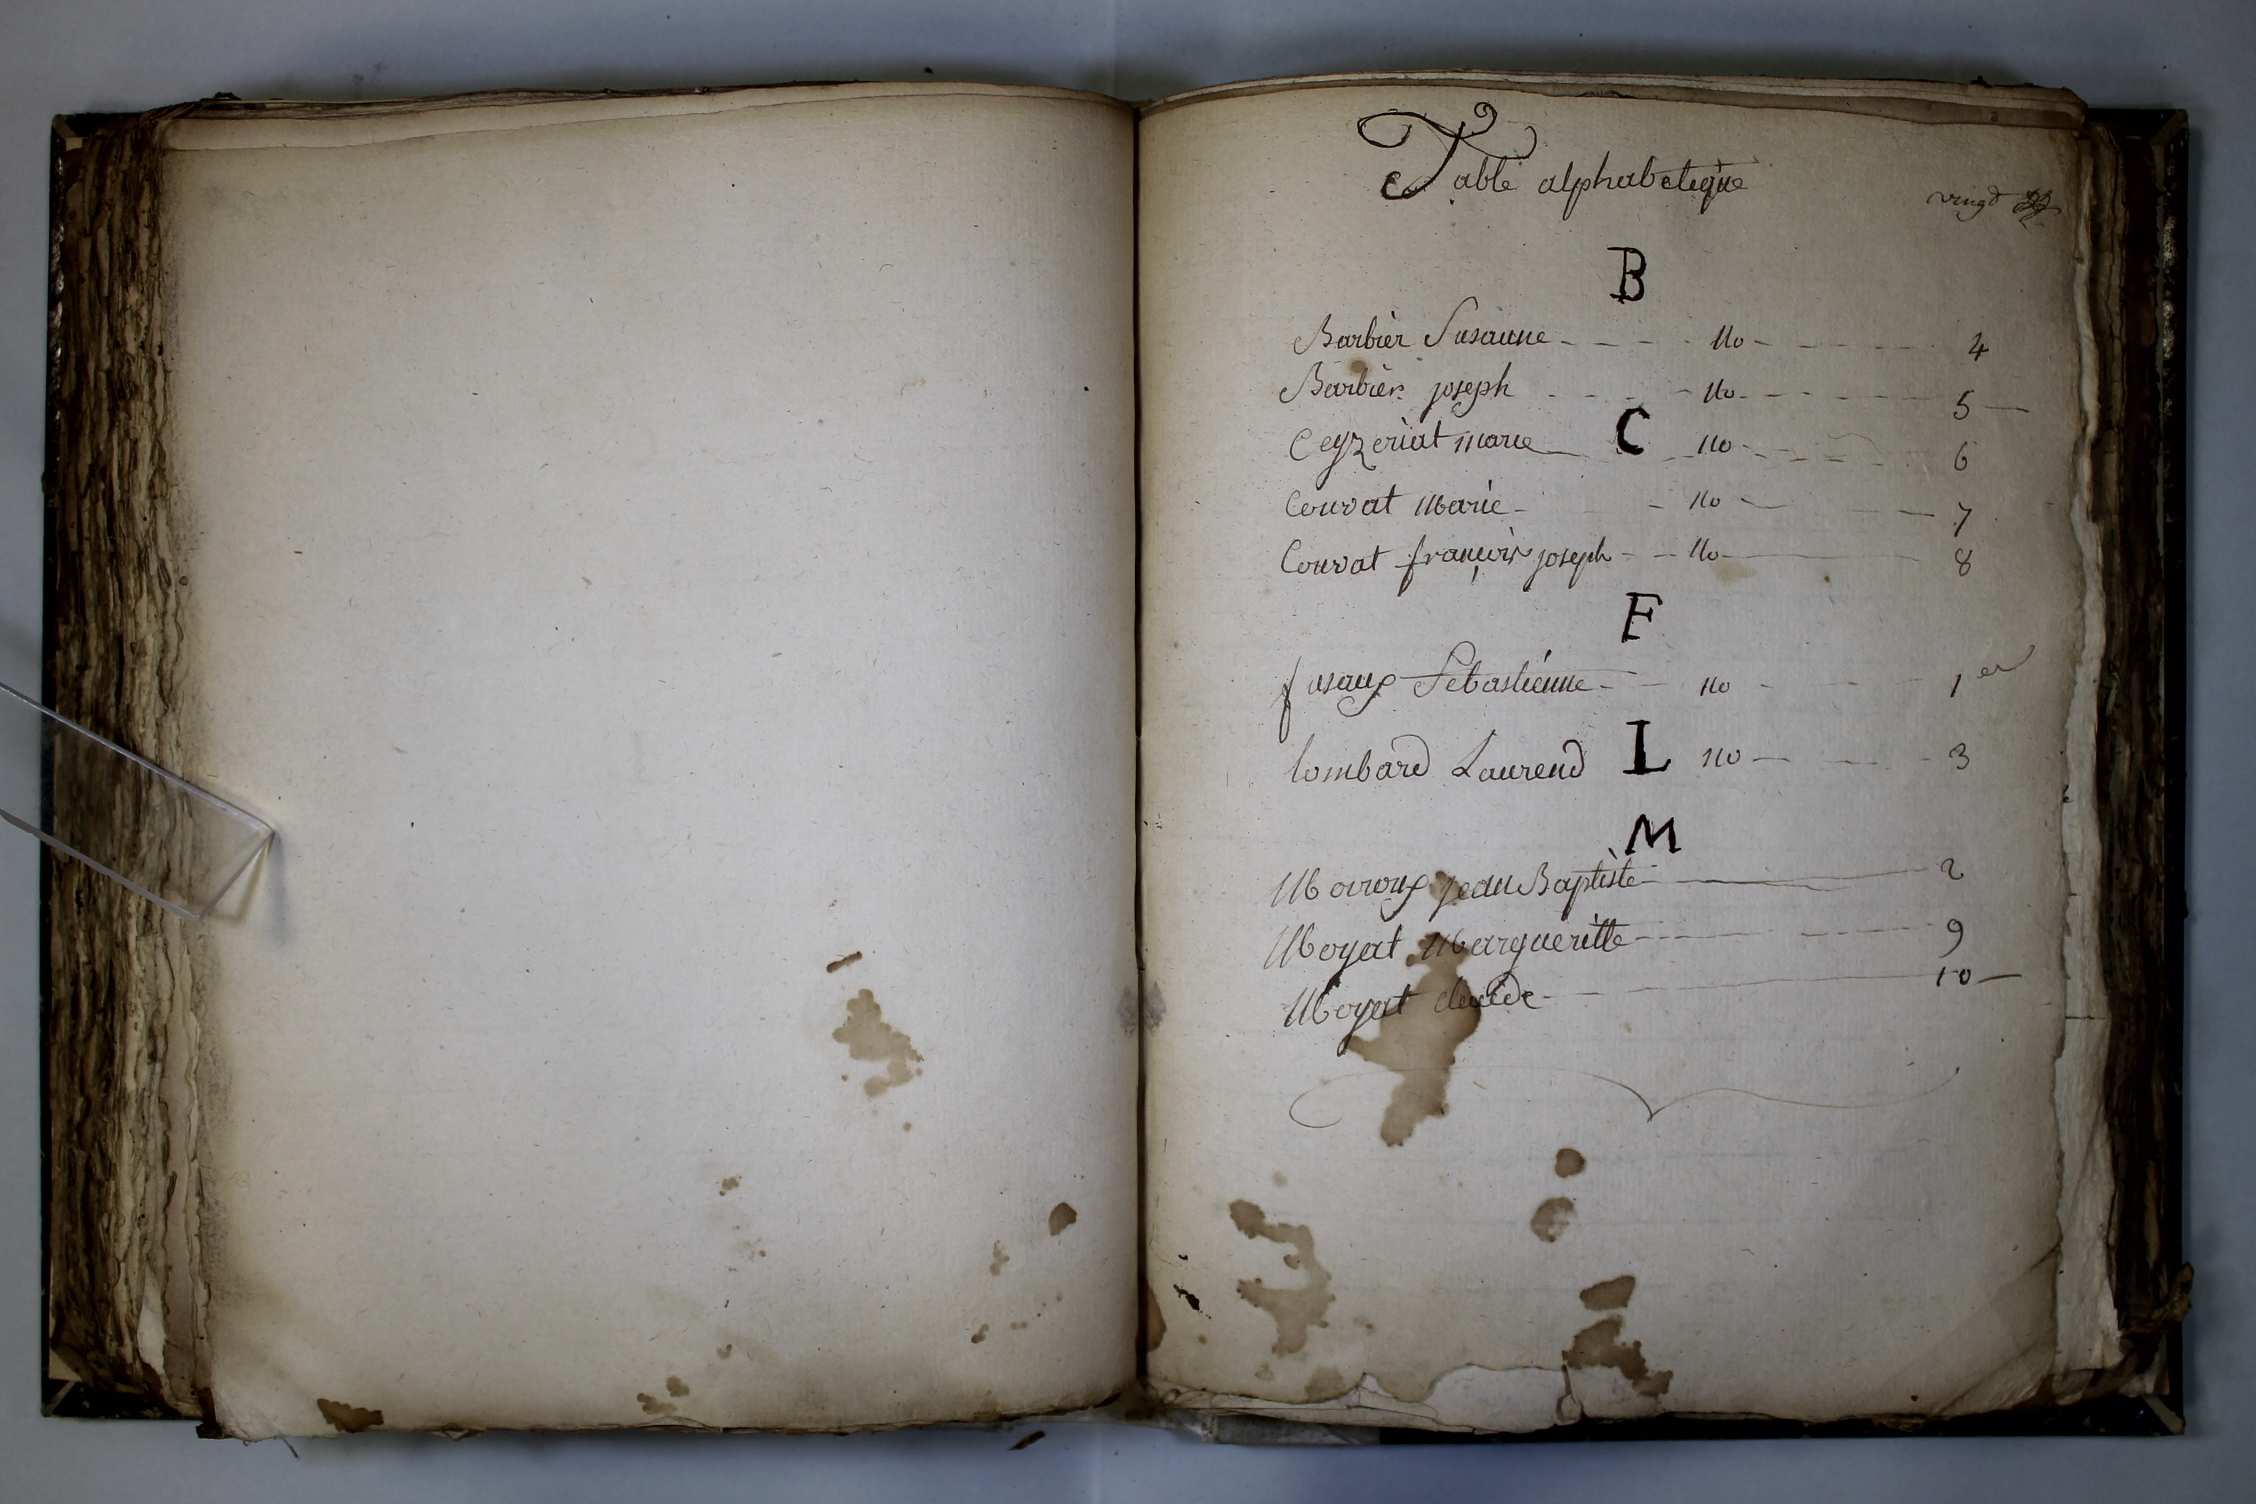 Table alphabetique
vingt
B
Barbier Susanne no 4
Barbier joseph no 5
C
Ceyzeriat marie no 6
Couvat Marie no 7
Couvat françois joseph no 8
F
fusaux Sebastienne no 1er
L
lombard Laurend no 3
M
Moiroux jean Baptiste 2
Moyat Margueritte 9
Moyat claude 10